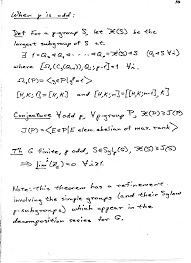 When p is odd:
Def For a p-group S, let 𝔛(S) be the
largest subgroup of S s.t.
∃ 1=Q₀ ≤ Q₁ ≤ ··· ≤ Qₙ=𝔛(S) ≤ S (Qᵢ ⊴ S ∀i)
where [Ω₁(C_S(Qᵢ₋₁)), Qᵢ; p-1]=1 ∀i.
Ω₁(P)=<g∈P | gᵖ=1>
[H,K;1]=[H,K] and [H,K;n]=[[H,K;n-1],K]
Conjecture ∀odd p, ∀p-group P, 𝔛(P) ≥ J(P)
J(P)=<E≤P | E elem. abelian of max. rank>
Th G finite, p odd, S∈Sylₚ(G), 𝔛(S) ≥ J(S)
⇒ limⁱ(Z_G)=0 ∀i≥1.
Note: this theorem has a refinement
involving the simple groups (and their Sylow
p-subgroups) which appear in the
decomposition series for G.